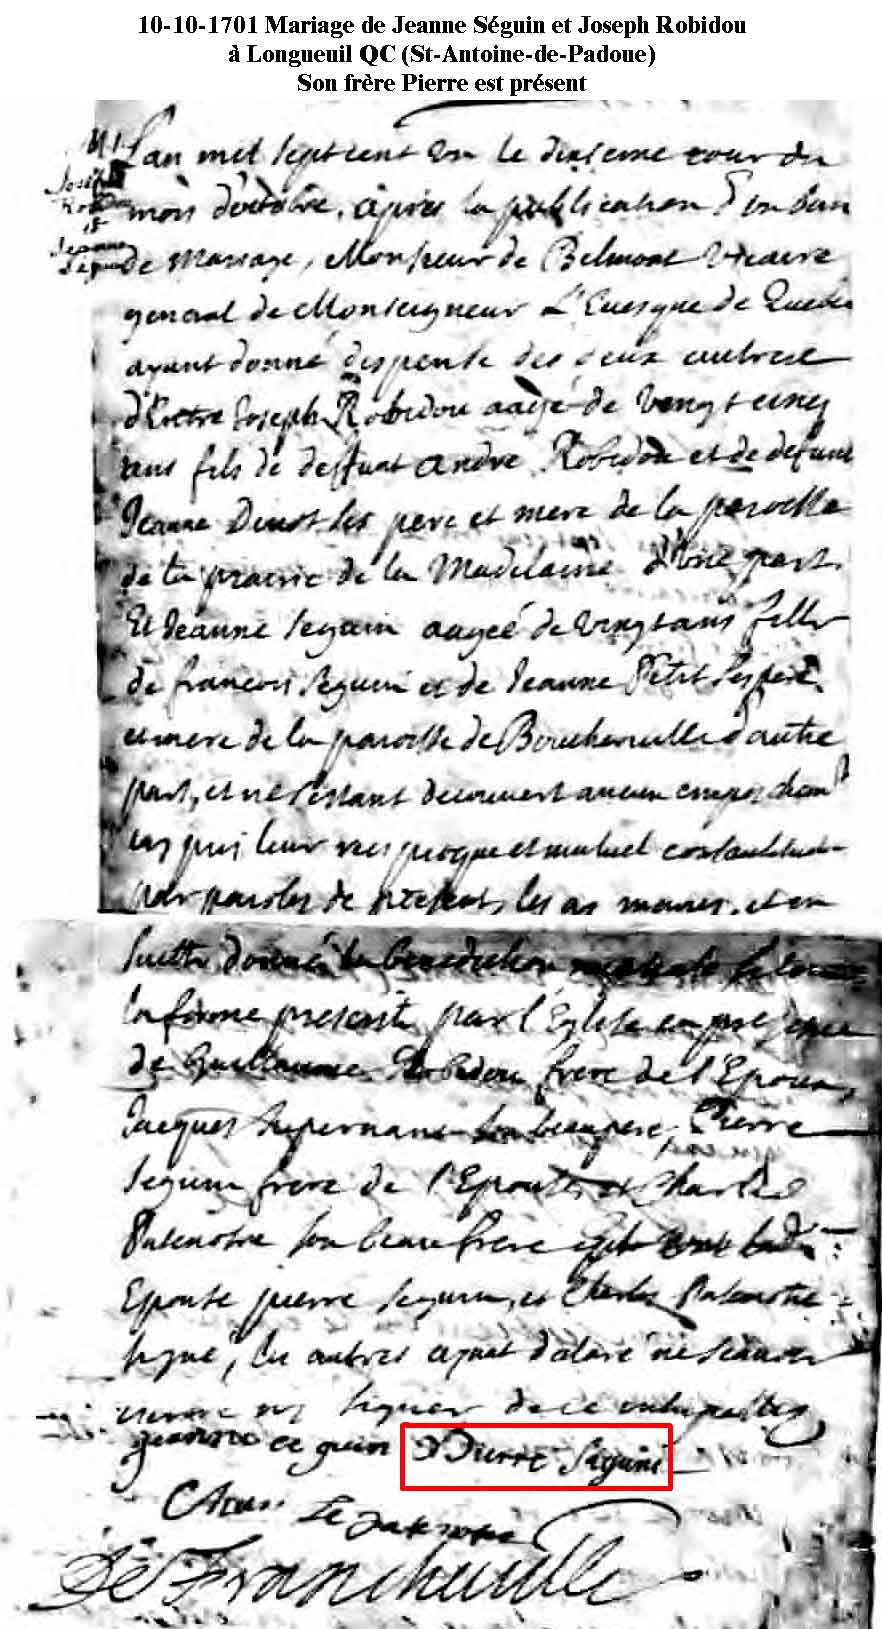 10-10-1701 Mariage de Jeanne Séguin et Joseph Robidou
à Longueuil QC (St-Antoine-de-Padoue)
Son frère Pierre est présent
L'an mil sept cent un le dixieme jour du
mois d'octobre, après la publication d'un ban
de Mariage, Monsieur de Belmont Vicaire
general de Monseigneur L'Evesque de Quebec
ayant donné dispense des deux autres
Joseph Robidou aagé de vingt cinq
ans fils de deffunt André Robidou et de defunte
Jeanne Denot ses pere et mere de la paroisse
de la prairie de la Madelaine d'une part.
Et Jeanne Seguin aageé de vingt ans fille
de francois Seguin et de Jeanne Petit ses pere
et mere de la paroisse de Boucherville d'autre
part, et ne s'estant decouvert aucun empeschem't
leur et mutuel
par paroles de present, les ay mariés, et en
suitte donné la benediction
la forme prescrite par l'Eglise en presence
de Guillaume Robidou frere de l'Epoux,
Jacques Supernant son beaupere, Pierre
Seguin frere de l'Epouse et Charles
Patenostre son beau frere
Epouse pierre Seguin, et Charles Patenostre
signé, les autres ayant declaré ne scavoir
signer de ce
Jeanne ce guin Pierre Seguin
De Francheville